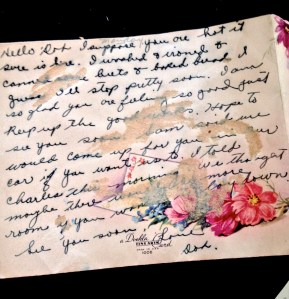 Hello Dot I suppose you are hot it
sure is here. I washed & ironed &
canned some beets & baked bread. I
guess I'll stop pretty soon. I am
so glad you are feeling so good just
keep up the good work. Hope to
see you soon. Sam said we
would come up for you in our
car if you want to. I told
Charles this morning. We thought
maybe there would more
room if you want down.
See you soon. Love
Dot.
a Double